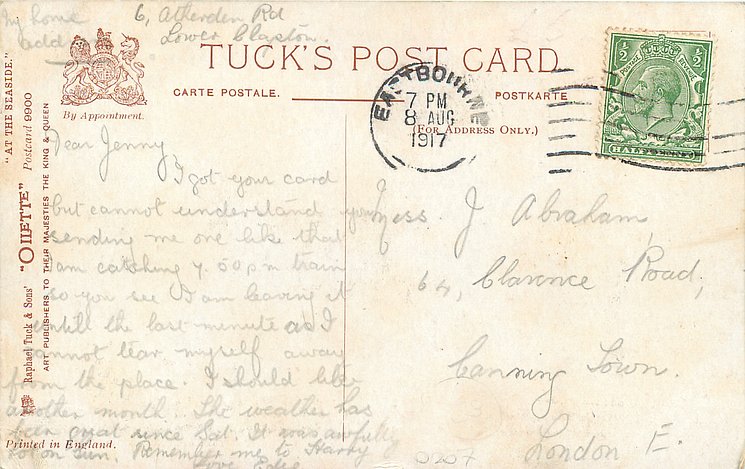 My home
add
6, Atherden Rd
Lower Clapton.
TUCK'S POST CARD
CARTE POSTALE.
POSTKARTE
(FOR ADDRESS ONLY.)
By Appointment.
"AT THE SEASIDE."
Postcard 9900
Raphael Tuck & Sons' "OILETTE"
ART PUBLISHERS TO THEIR MAJESTIES THE KING & QUEEN
Printed in England.
EASTBOURNE
7 PM
8 AUG
1917
½ ½
POSTAGE
HALFPENNY
Dear Jenny
I got your card
but cannot understand you
sending me one like that
I am catching 7.50 pm train
so you see I am leaving it
until the last minute as I
cannot tear myself away
from the place. I should like
another month. The weather has
been great since Sat. It was awfully
hot on Sun. Remember me to Harry
Love Edie
Miss. J Abraham,
64, Clarence Road,
Canning Town.
London E.